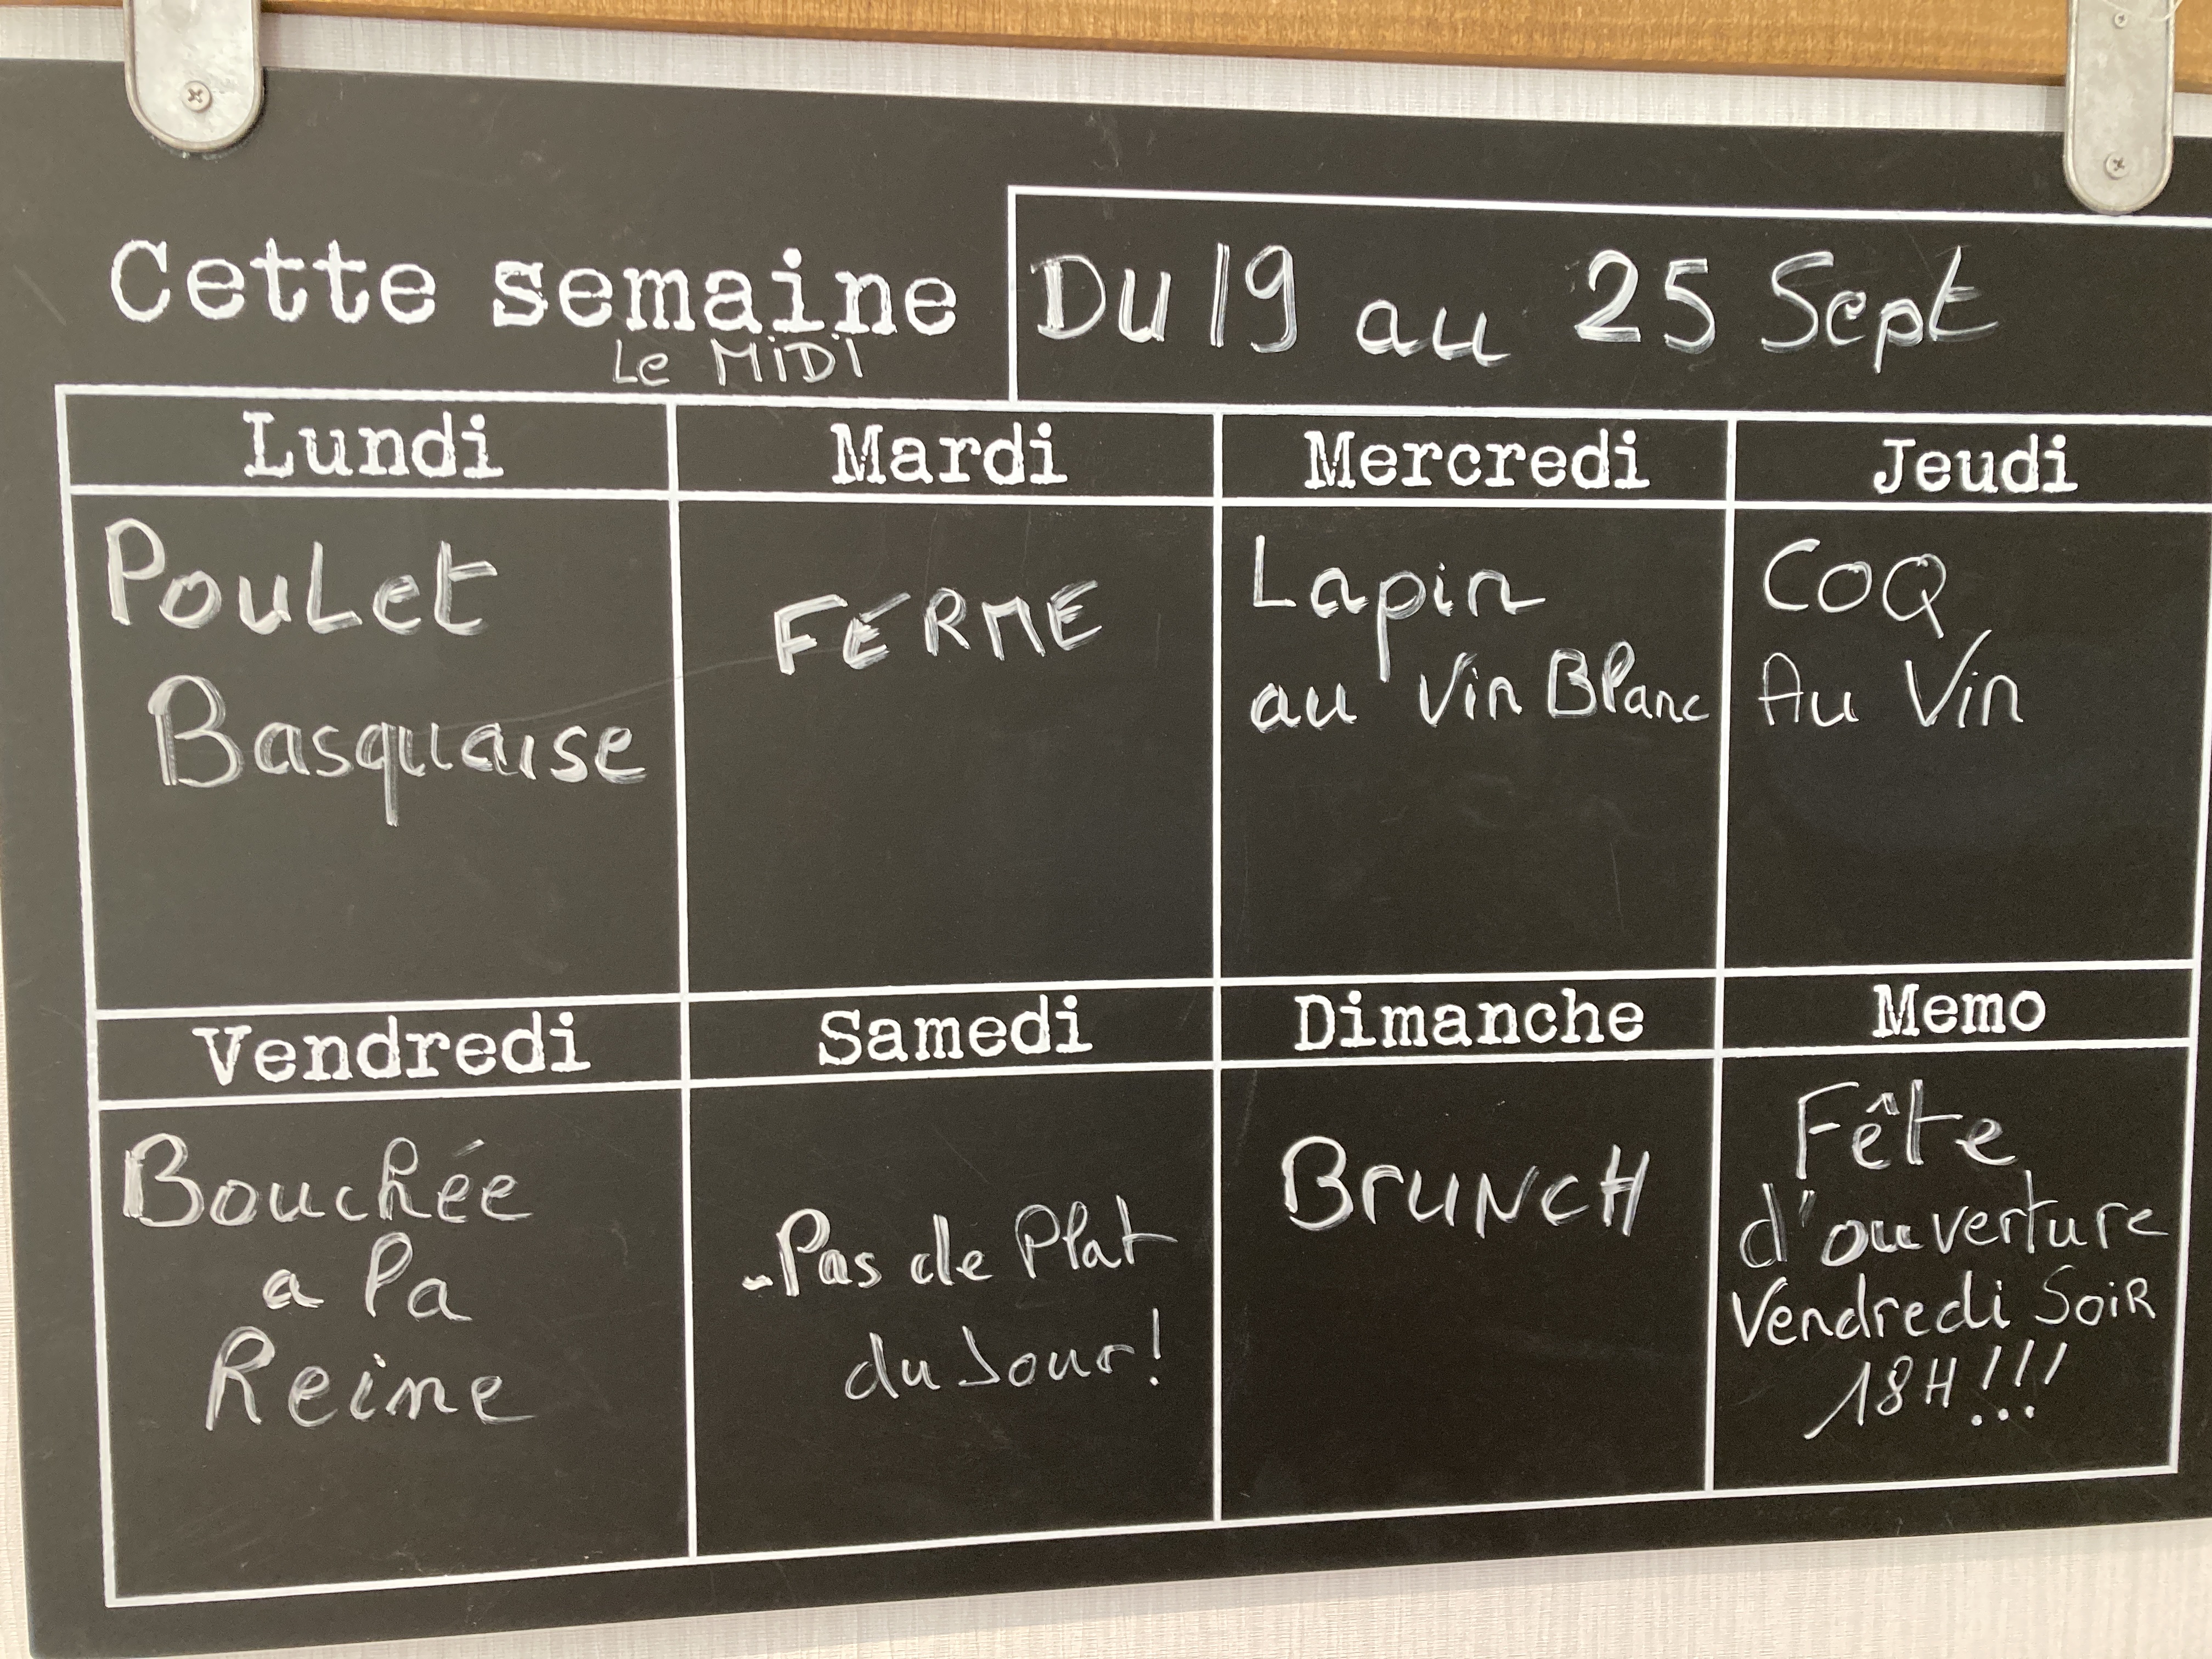 Cette semaine
Le MiDi
DU 19 au 25 Sept
Lundi
Mardi
Mercredi
Jeudi
PouLet
Basquaise
FERME
Lapin
au Vin Blanc
COQ
Au Vin
Vendredi
Samedi
Dimanche
Memo
Bouchée
a la
Reine
-Pas de Plat
du Jour!
BrUNCH
Fête
d'ouverture
Vendredi SoiR
18H!!!